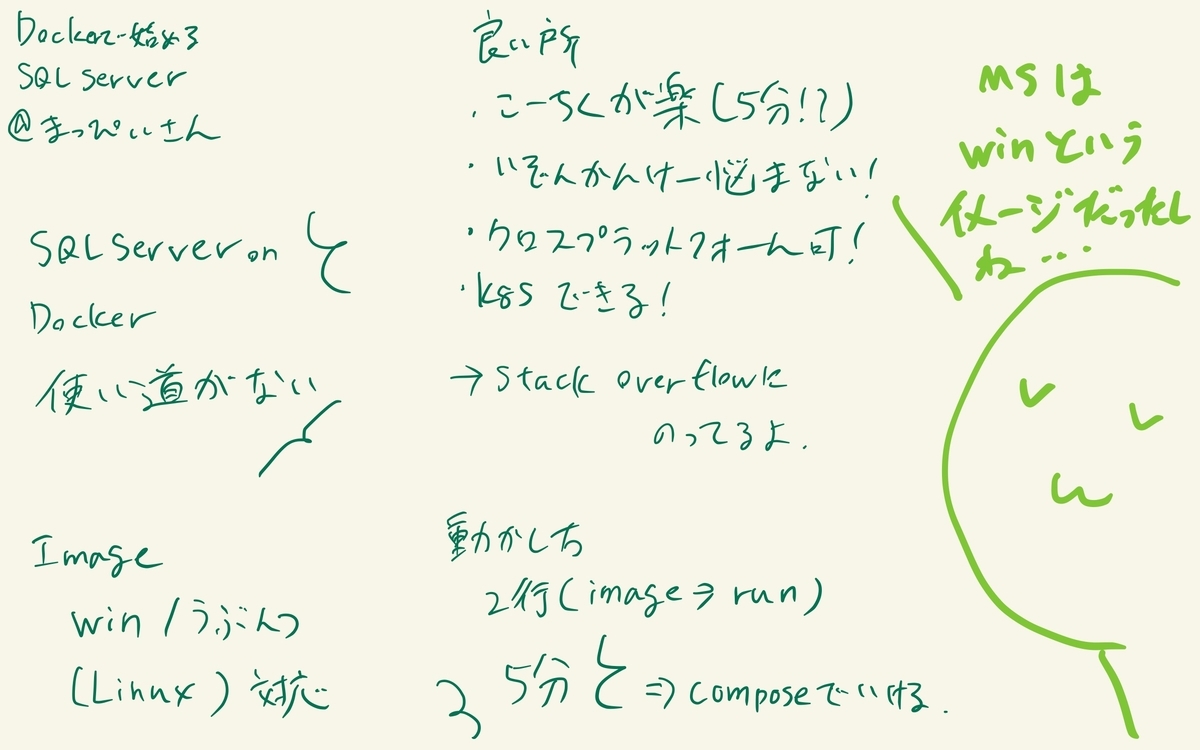 Dockerで始める
SQL Server
@まっぴぃさん
SQL Server on
Docker
使い道がない
Image
win / うぶんつ
(Linux) 対応
良い所
・こーちくが楽(5分!?)
・いぞんかんけー悩まない!
・クロスプラットフォーム可!
・k8s できる!
→ Stack overflowに
のってるよ.
動かし方
2行(image → run)
5分 ⇒ composeでいける.
MSは
winという
イメージだったし
ね…